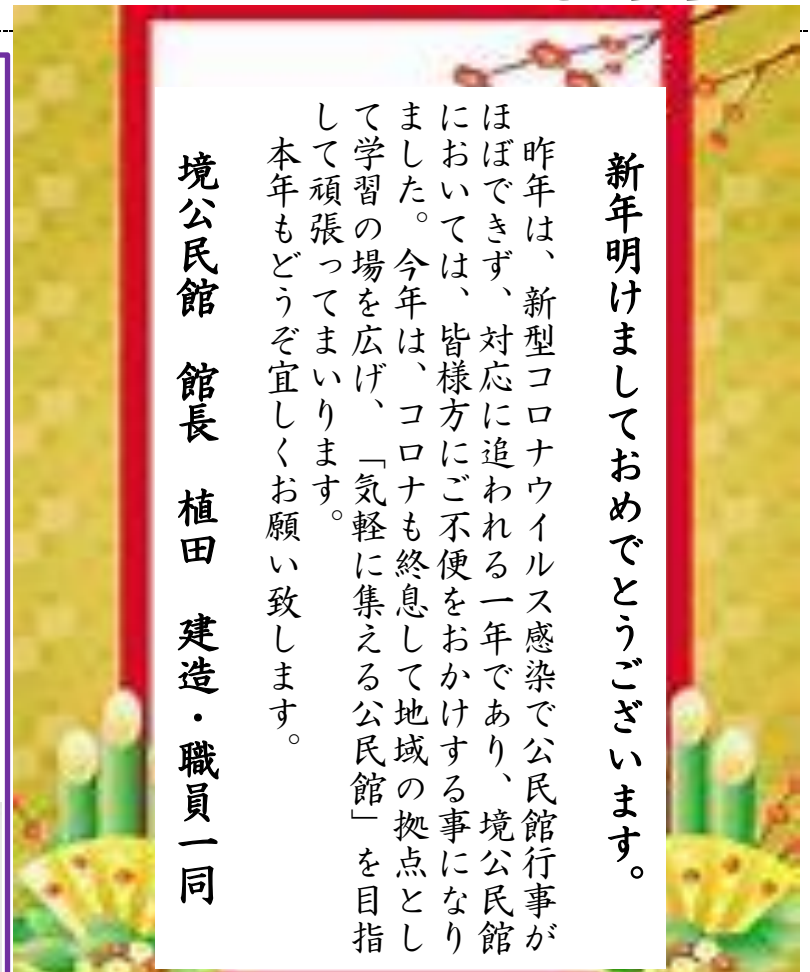 新年明けましておめでとうございます。
昨年は、新型コロナウイルス感染で公民館行事が
ほぼできず、対応に追われる一年であり、境公民館
においては、皆様方にご不便をおかけする事になり
ました。今年は、コロナも終息して地域の拠点とし
て学習の場を広げ、「気軽に集える公民館」を目指
して頑張ってまいります。
本年もどうぞ宜しくお願い致します。
境公民館　館長　植田　建造・職員一同